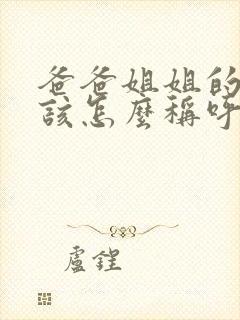 爸爸姐姐的
該怎麼稱呼
盧鋥